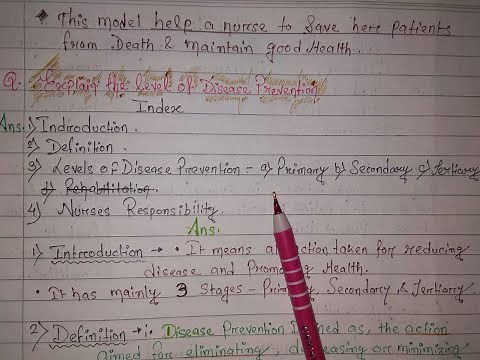 * This model help a nurse to Save here patients
from Death & maintain good Health.
Q. Explain the level of Disease Prevention
Index
Ans. 1) Indroduction.
2) Definition.
3) Levels of Disease Prevention - a) Primary b) Secondary c) Tertiary
d) Rehabilitation.
4) Nurses Responsibility.
Ans.
1) Introduction → • It means taken for reducing
disease and Health.
• It has mainly 3 Stages - Secondary, & Tertiary
2) Definition → i. Disease Prevention as, the action
aimed for eliminating, or minimizing